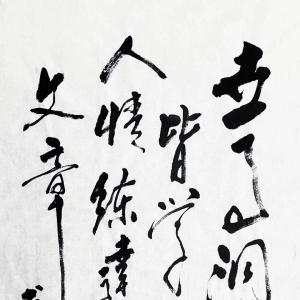 世事洞
皆学
人情练達
文章